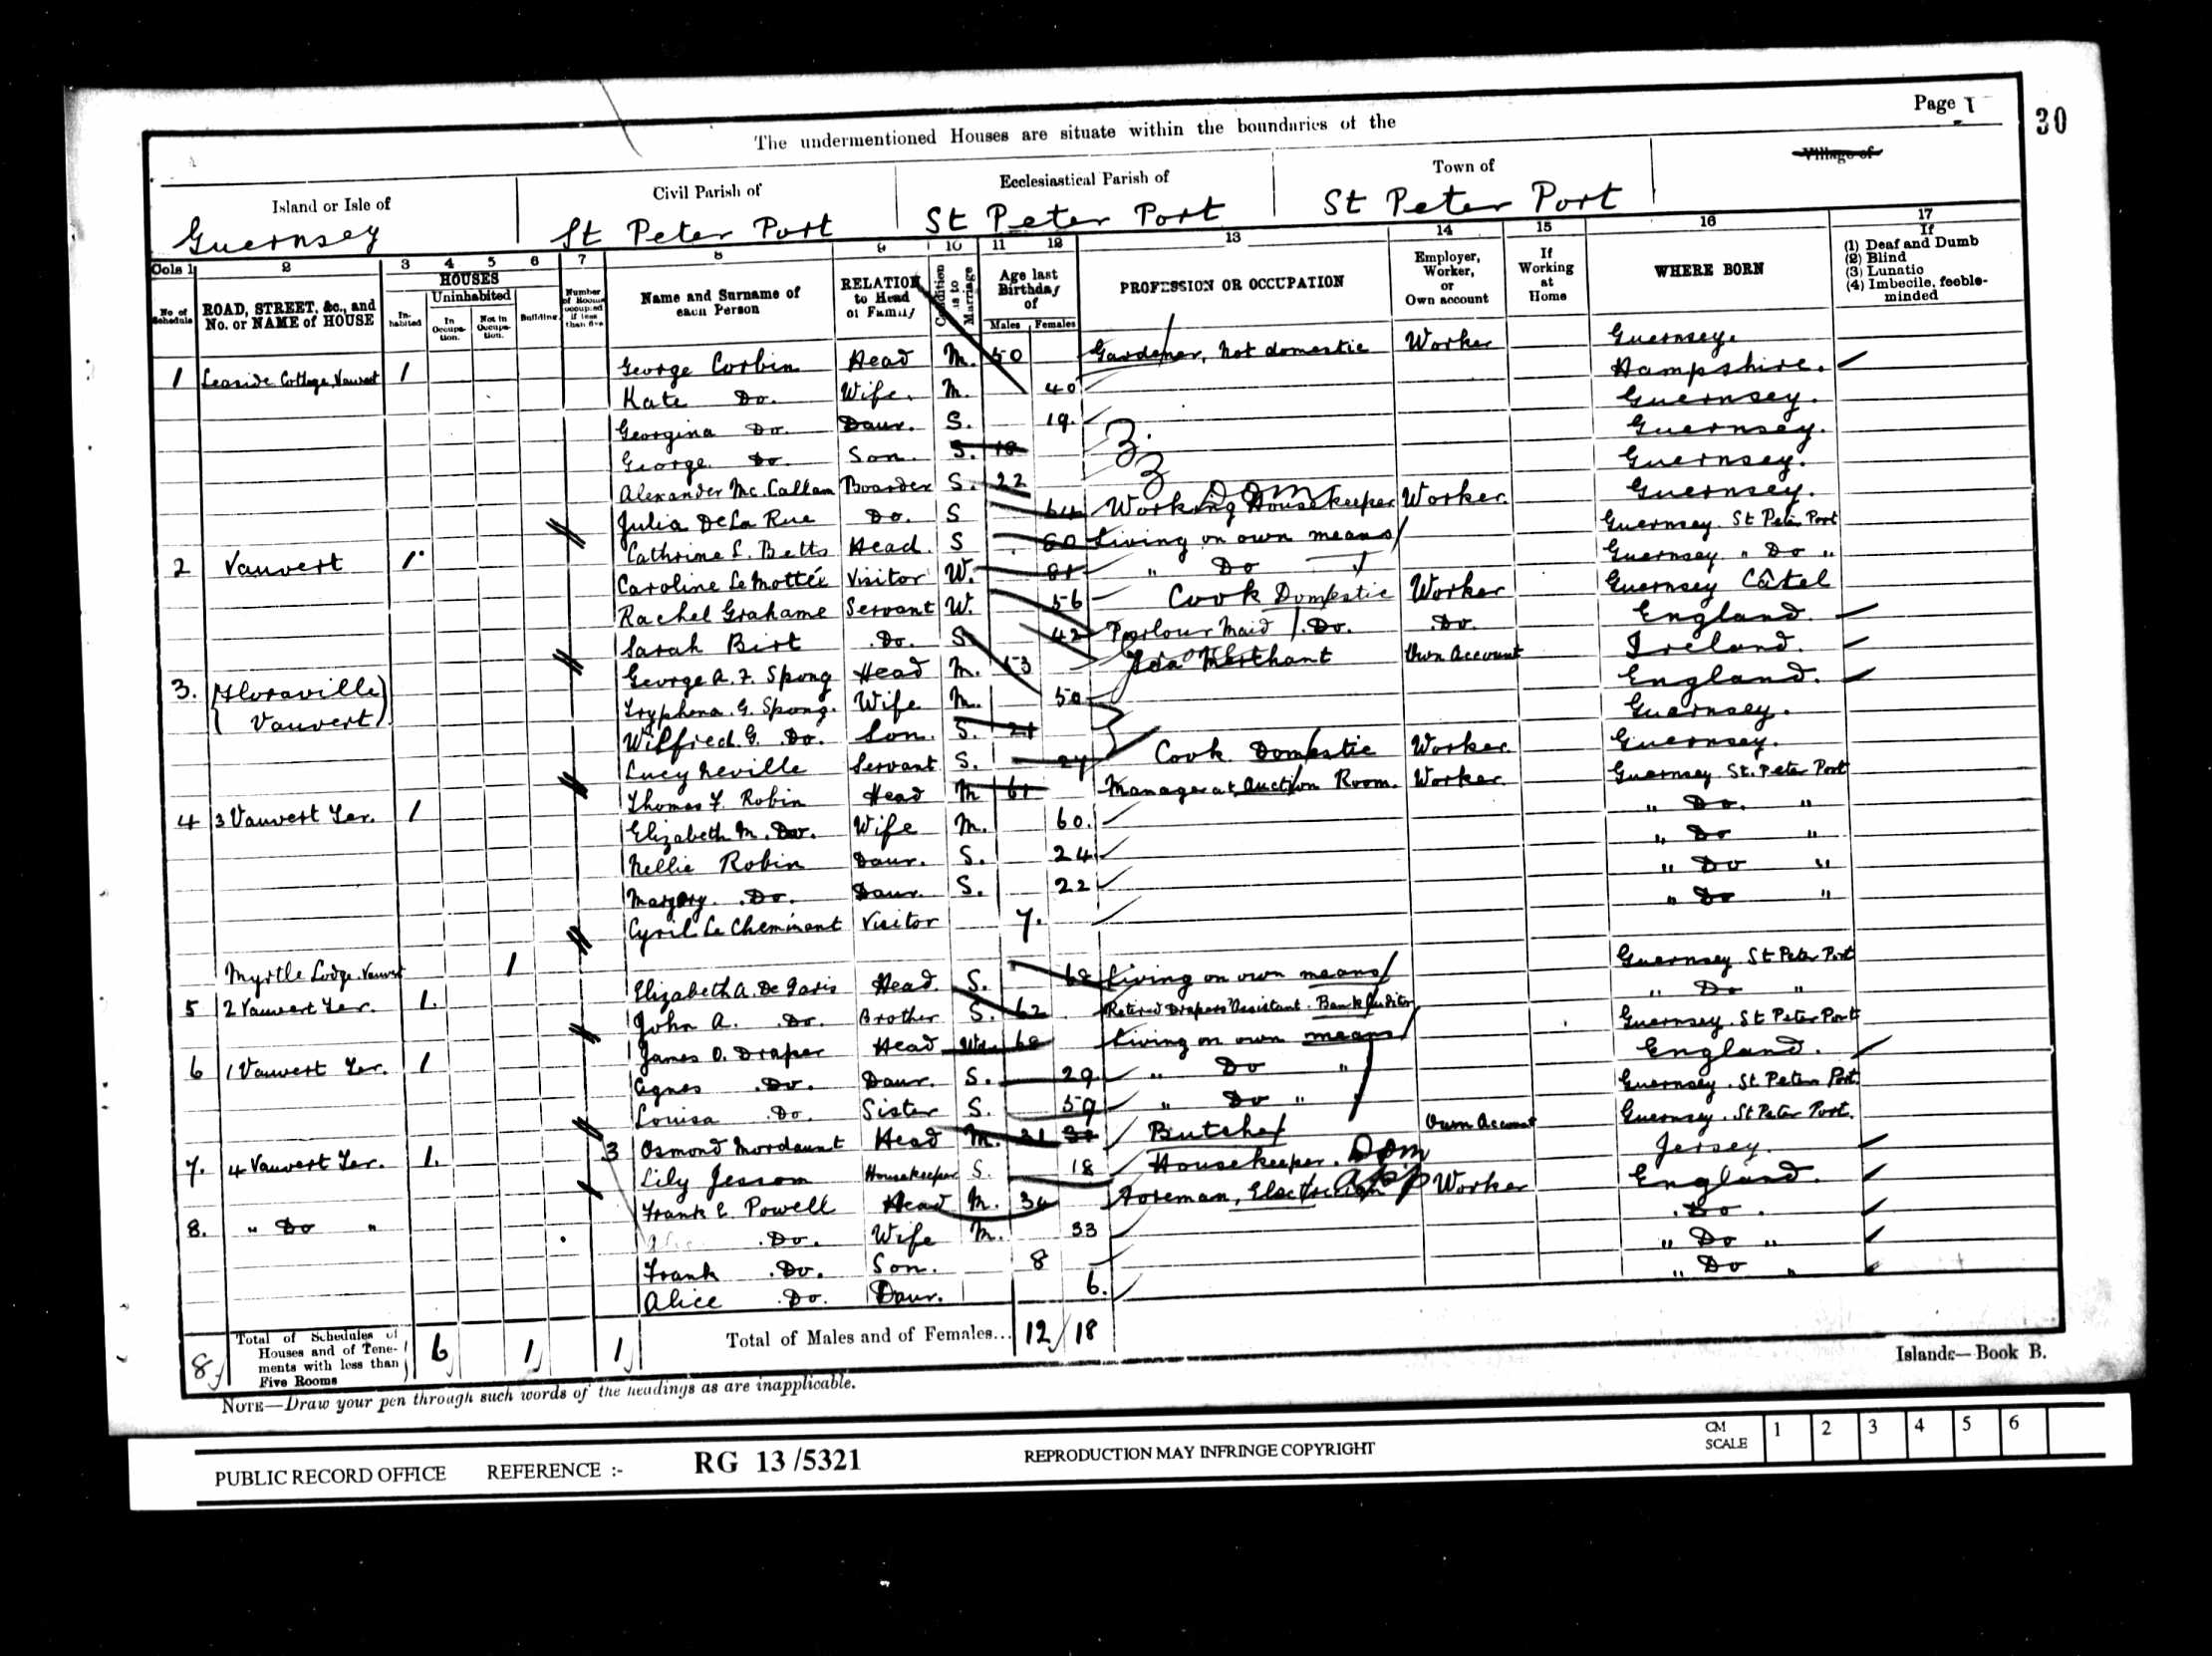 Page 1
30
The undermentioned Houses are situate within the boundaries of the
Island or Isle of
Civil Parish of
Ecclesiastical Parish of
Town of
Village of
Guernsey
St Peter Port
St Peter Port
St Peter Port
Cols 1 2 3 4 5 6 7 8 9 10 11 12 13 14 15 16 17
No. of Schedule
ROAD, STREET, &c., and No. or NAME of HOUSE
HOUSES
Inhabited
Uninhabited
In Occupation.
Not in Occupation.
Building.
Number of Rooms occupied if less than five
Name and Surname of each Person
RELATION to Head of Family
Condition as to Marriage
Age last Birthday of
Males Females
PROFESSION OR OCCUPATION
Employer, Worker, or Own account
If Working at Home
WHERE BORN
If
(1) Deaf and Dumb
(2) Blind
(3) Lunatic
(4) Imbecile, feeble-minded
1 Leaside Cottage, Vauvert 1 George Corbin Head M. 50 Gardener, not domestic Worker Guernsey.
Kate Do. Wife. M. 40 Hampshire.
Georgina Do. Daur. S. 19. Guernsey.
George. Do. Son. S. 18 3. Guernsey.
Alexander Mc. Callam Boarder S. 22 3 Guernsey.
Julia De La Rue Do. S 64 Working Housekeeper Dom Worker. Guernsey.
2 Vauvert 1 Cathrine L. Betts Head. S 80 Living on own means Guernsey. St Peter Port
Caroline Le Mottée Visitor W. 81 " Do Guernsey " Do "
Rachel Grahame Servant W. 56 Cook Domestic Worker Guernsey Câtel
Sarah Birt Do. S 42 Parlour Maid Do. Do. England.
3. Floraville Vauvert George A. F. Spong Head M. 53 Tea Merchant Own Account Ireland.
Tryphena. G. Spong. Wife M. 50 England.
Wilfred. G. Do. Son. S. 21 3 Guernsey.
Lucy Neville Servant S. 27 Cook Domestic Worker Guernsey.
4 3 Vauvert Ter. 1 Thomas F. Robin Head M 61 Manager at Auction Room. Worker. Guernsey St. Peter Port
Elizabeth M. Do. Wife M. 60. " Do. "
Nellie Robin Daur. S. 24 " Do "
Margory. Do. Daur. S. 22 " Do "
Cyril Le Cheminant Visitor 7. " Do "
Myrtle Lodge. Vauvert 1
5 2 Vauvert Ter. 1. Elizabeth A. De Garis Head. S. 68 Living on own means Guernsey St Peter Port
John A. Do. Brother S. 62 Retired Drapers Assistant. Bank Auditor " Do "
6 1 Vauvert Ter. 1 James O. Draper Head 68 Living on own means Guernsey. St Peter Port
Agnes Do. Daur. S. 29. " Do " England.
Louisa Do. Sister S. 59 " Do " Guernsey. St Peter Port.
7. 4 Vauvert Ter. 1. 3 Osmond Mordaunt Head M. 31 Butcher Own Account Guernsey. St Peter Port.
Lily Jessom Housekeeper S. 18 Housekeeper. Dom Jersey.
8. " Do " Frank E. Powell Head M. 34 Foreman, Electrician App Worker England.
Do. Wife M. 33 Do.
Frank Do. Son. 8 " Do "
Alice Do. Daur. 6. " Do "
8 Total of Schedules of Houses and of Tenements with less than Five Rooms 6 1 1 Total of Males and of Females... 12 18
NOTE—Draw your pen through such words of the headings as are inapplicable.
Islands—Book B.
PUBLIC RECORD OFFICE REFERENCE :- RG 13/5321 REPRODUCTION MAY INFRINGE COPYRIGHT
CM SCALE 1 2 3 4 5 6